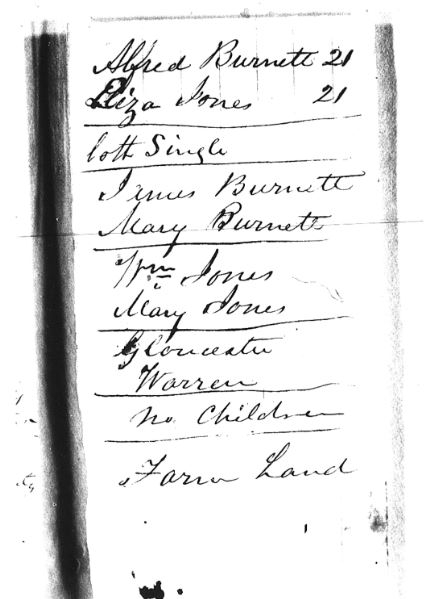 Alfred Burnett 21
Eliza Jones 21
both Single
James Burnett
Mary Burnett
Wm Jones
Mary Jones
Gloucester
Warren
No Children
Farm Land